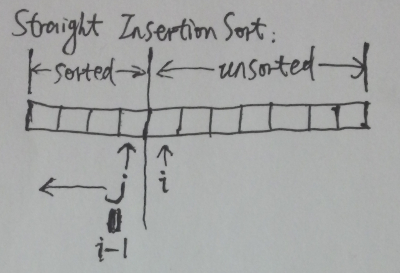 Straight Insertion Sort:
sorted unsorted
j i
i-1